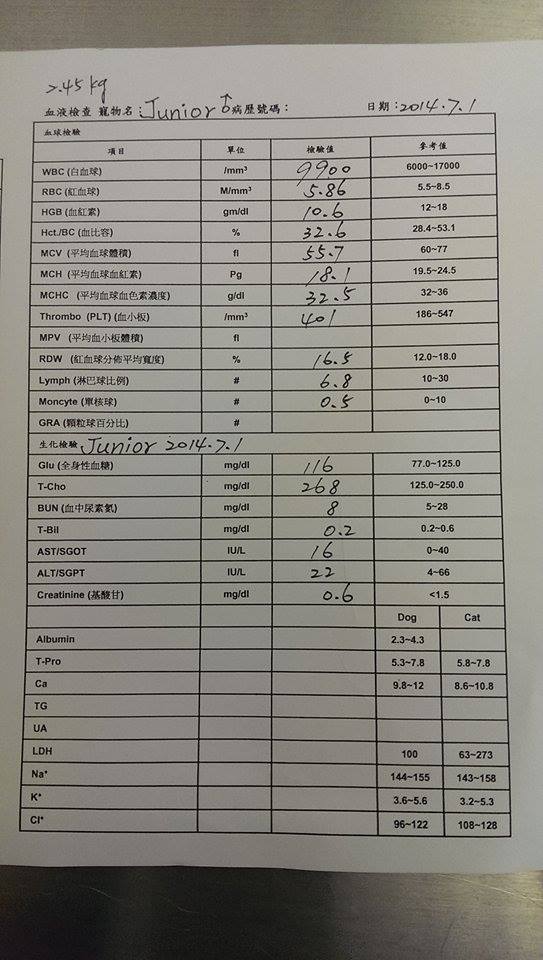 2.45 kg
血液檢查 寵物名：Junior ♂ 病歷號碼： 日期：2014.7.1
血球檢驗
項目 單位 檢驗值 參考值
WBC (白血球) /mm³ 9900 6000~17000
RBC (紅血球) M/mm³ 5.86 5.5~8.5
HGB (血紅素) gm/dl 10.6 12~18
Hct./BC (血比容) % 32.6 28.4~53.1
MCV (平均血球體積) fl 55.7 60~77
MCH (平均血球血紅素) Pg 18.1 19.5~24.5
MCHC (平均血球血色素濃度) g/dl 32.5 32~36
Thrombo (PLT) (血小板) /mm³ 401 186~547
MPV (平均血小板體積) fl
RDW (紅血球分佈平均寬度) % 16.5 12.0~18.0
Lymph (淋巴球比例) # 6.8 10~30
Moncyte (單核球) # 0.5 0~10
GRA (顆粒球百分比) #
生化檢驗 Junior 2014.7.1
Glu (全身性血糖) mg/dl 116 77.0~125.0
T-Cho mg/dl 268 125.0~250.0
BUN (血中尿素氮) mg/dl 8 5~28
T-Bil mg/dl 0.2 0.2~0.6
AST/SGOT IU/L 16 0~40
ALT/SGPT IU/L 22 4~66
Creatinine (基酸甘) mg/dl 0.6 <1.5
Dog Cat
Albumin 2.3~4.3
T-Pro 5.3~7.8 5.8~7.8
Ca 9.8~12 8.6~10.8
TG
UA
LDH 100 63~273
Na⁺ 144~155 143~158
K⁺ 3.6~5.6 3.2~5.3
Cl⁺ 96~122 108~128